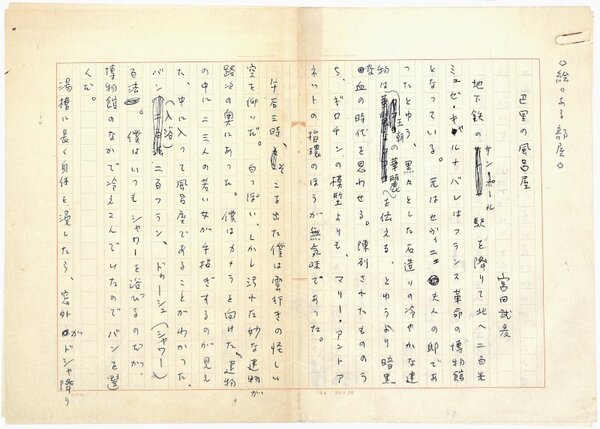 ◇絵のある部屋◇
巴里の風呂屋
宮田
地下鉄のサンポール駅を降りて北へ二百米
ミュゼ・カルナバレはフランス革命の博物館
となっている。元はセヴィニエ夫人の邸であ
ったとゆう、黒々とした石造りの冷やかな建
物は王朝の華麗を伝える、とゆうより暗黒
血の時代を思わせる。陳列されたもののう
ち、ギロチンの模型よりも、マリー・アントア
ネットの指環のほうが無気味であった。
午后三時、そこを出た僕は雲行きの怪しい
空を仰いだ。白っぽい、しかし汚れた妙な建物が
路次の奥にあった。僕はカメラを向けた。建物
の中に二三人の若い女が手招ぎするのが見え
た。中に入って風呂屋であることがわかった。
バン(入浴)二百フラン、ドゥーシュ(シャワー)
百法。僕はいつもシャワーを浴びるのだが、
博物館のなかで冷えこんでいたのでバンを選
んだ。
湯槽に長く身体を浸したら、窓外がドシャ降り